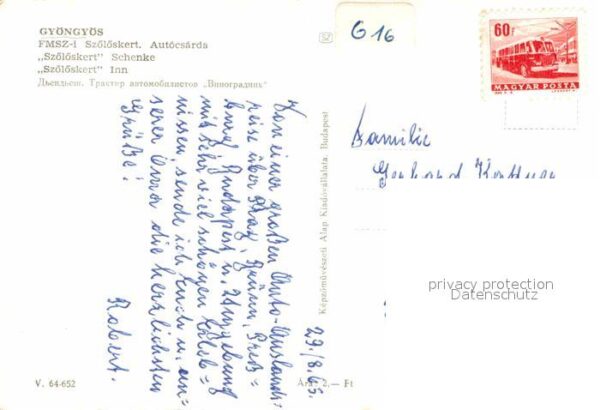 GYÖNGYÖS
FMSZ-i Szőlőskert. Autócsárda
„Szőlőskert” Schenke
„Szőlőskert” Inn
Дьендьеш. Трактер автомобилистов „Виноградник”
G 16
60f
MAGYAR POSTA
29./8. 65.
Von einer großen Auto-Auslands-
reise über Prag, Brünn, Preß-
burg, Budapest u. Umgebung
mit sehr viel schönen Erleb-
nissen, sende ich Euch u. un-
serer Oma die herzlichsten
Grüße!
Robert.
Képzőművészeti Alap Kiadóvállalata, Budapest
Familie
Gerhard
privacy protection
Datenschutz
V. 64-652
Ára: 2.— Ft